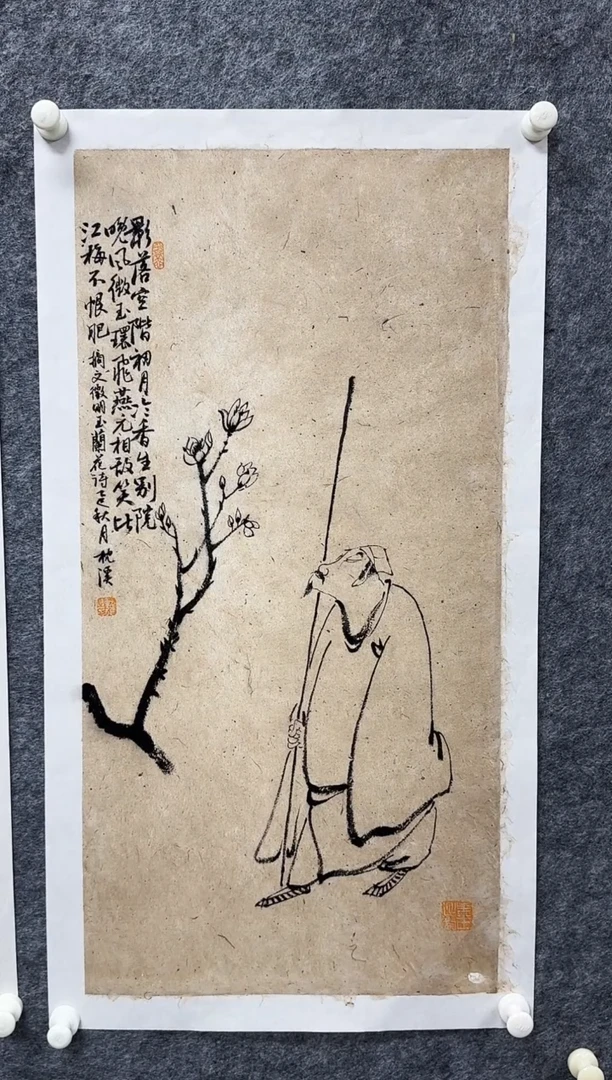 影落空階初月冷香生别院
晚風微玉環飛燕元相敌笑比
江梅不恨肥 摘文徵明玉蘭花诗乙巳秋月 枕溪